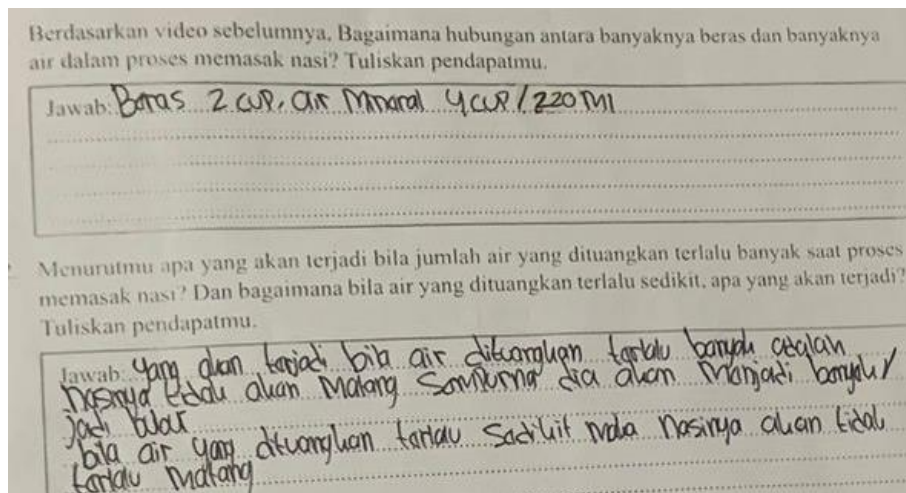 Berdasarkan video sebelumnya, Bagaimana hubungan antara banyaknya beras dan banyaknya
air dalam proses memasak nasi? Tuliskan pendapatmu.
Jawab: Beras 2 cup, air Mineral 4 cup / 220 Ml
Menurutmu apa yang akan terjadi bila jumlah air yang dituangkan terlalu banyak saat proses
memasak nasi? Dan bagaimana bila air yang dituangkan terlalu sedikit, apa yang akan terjadi?
Tuliskan pendapatmu.
Jawab: yang akan terjadi bila air dituangkan terlalu banyak adalah
nasinya tidak akan Matang Sempurna dia akan Menjadi /
Jadi
bila air yang dituangkan terlau Sedikit Maka nasinya akan tidak
terlalu Matang